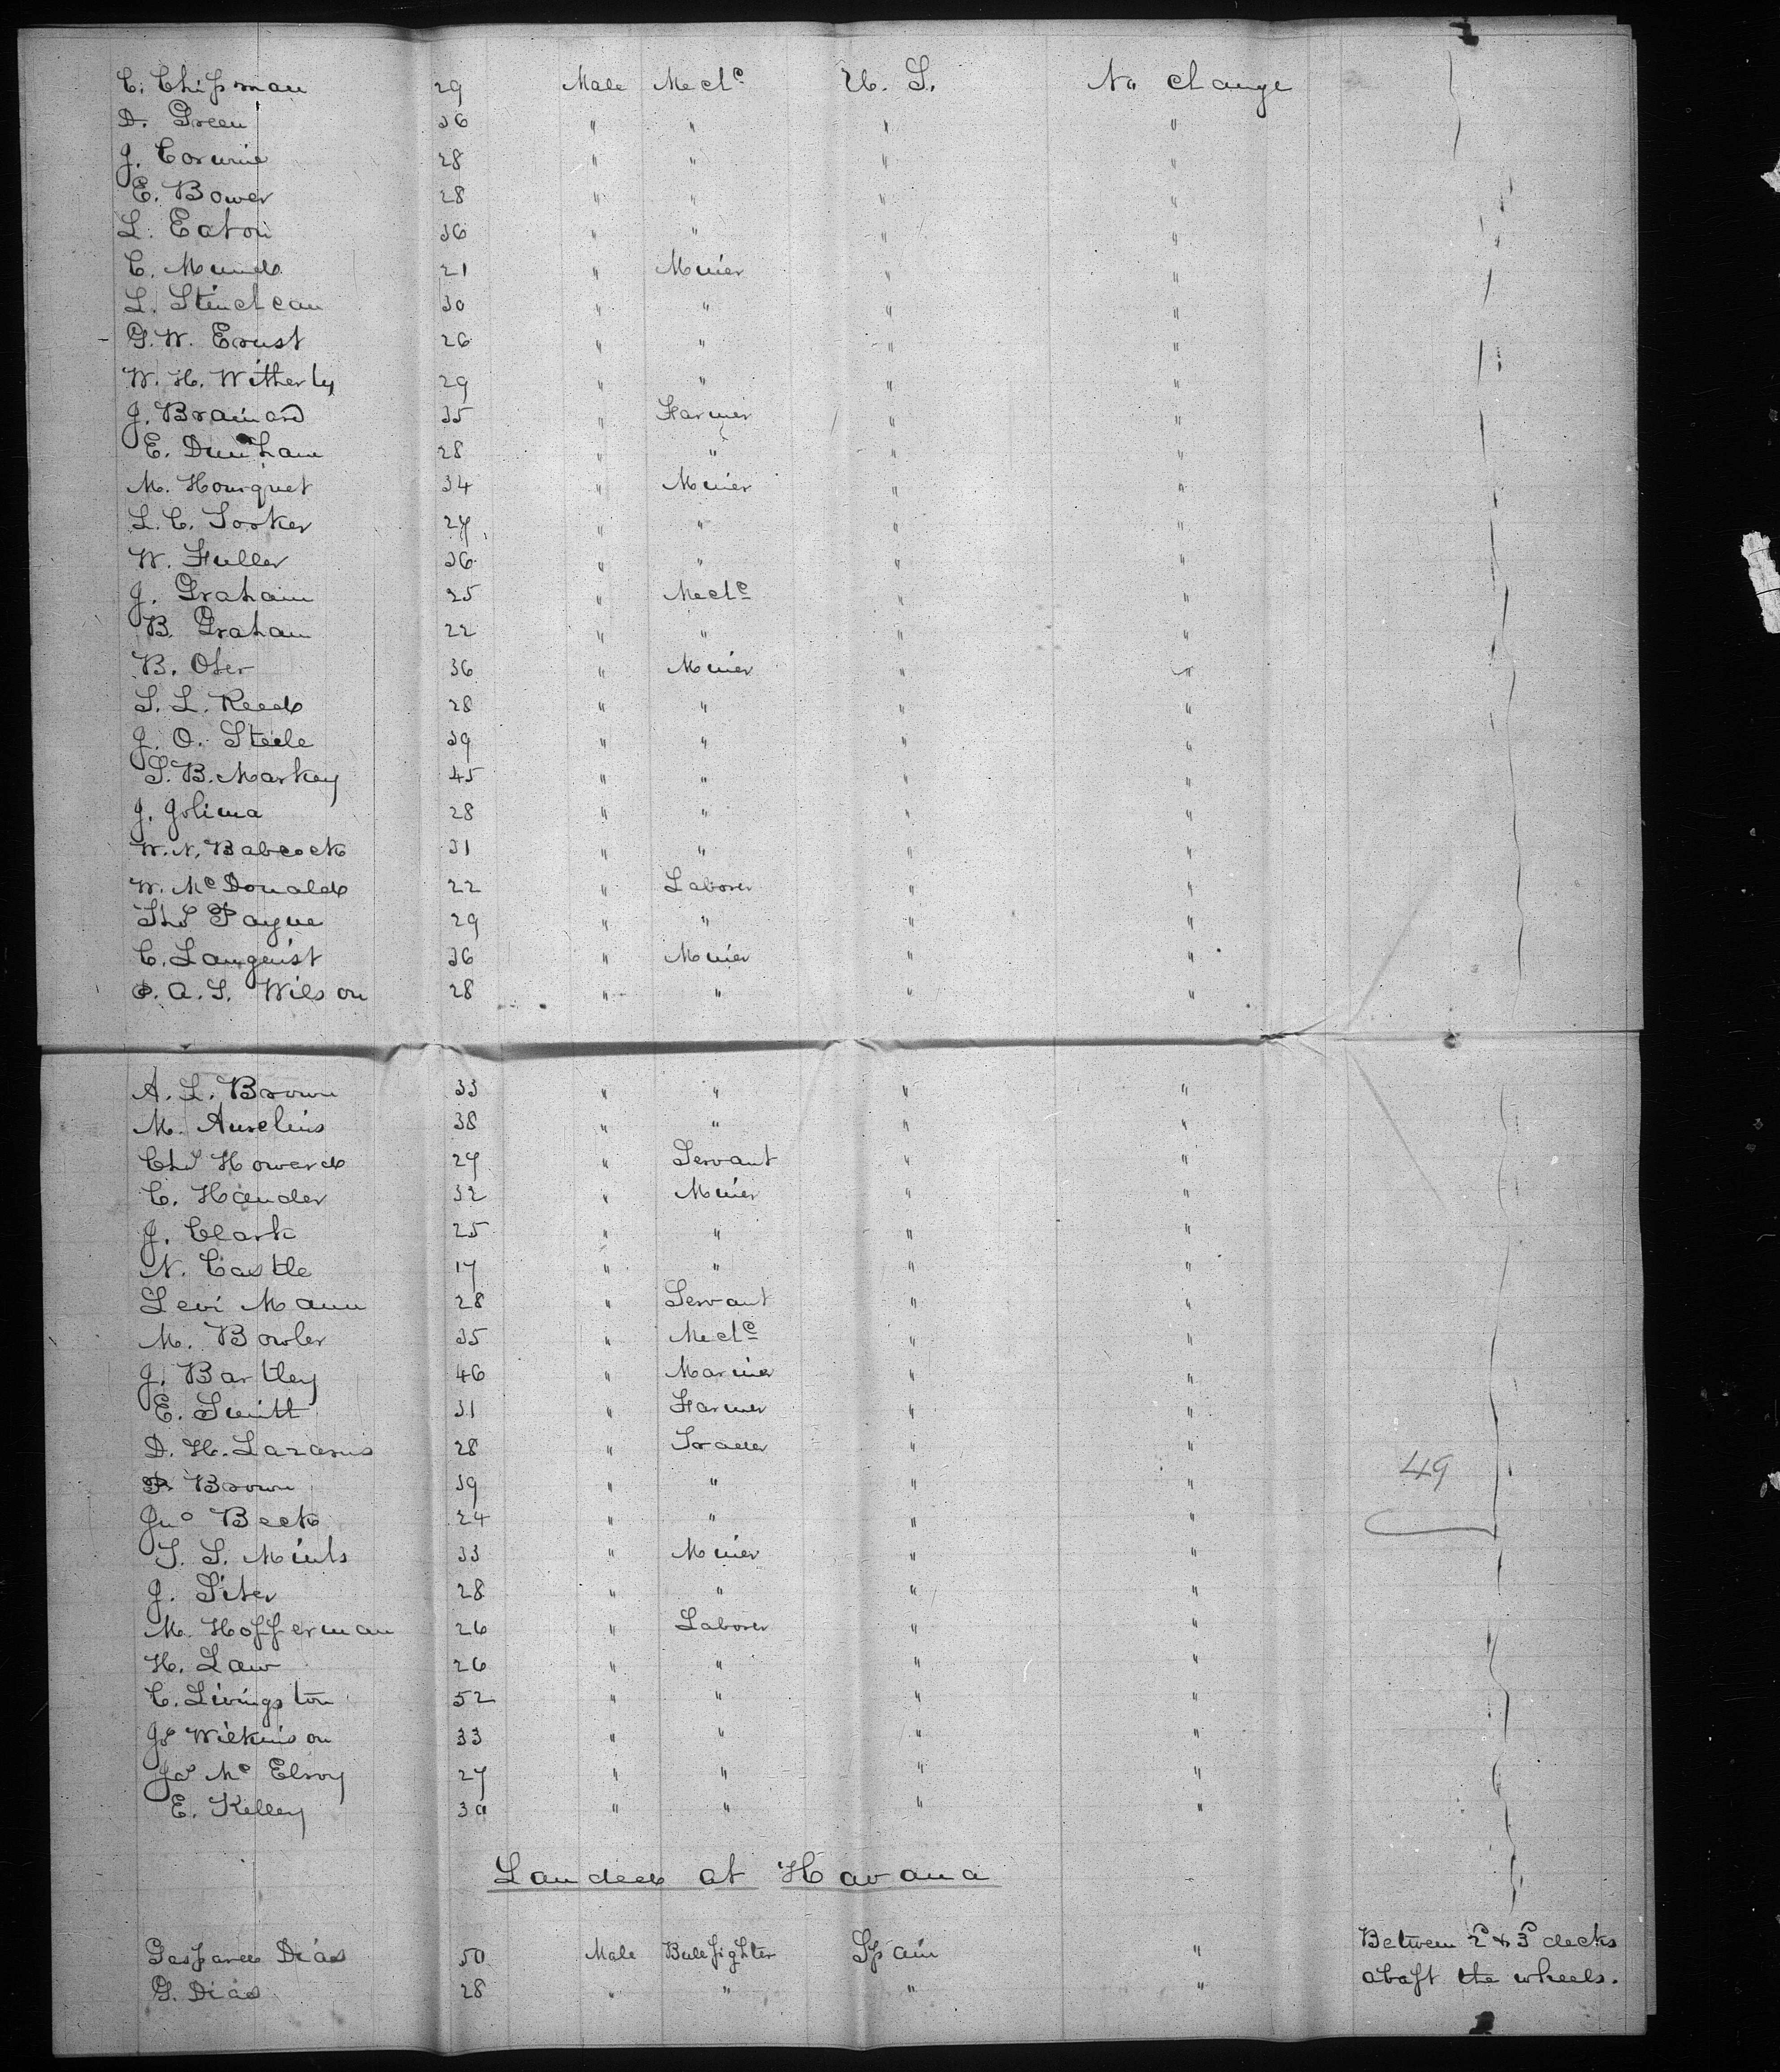 C. Chipman 29 Male Mech<sup>c</sup> U. S. No change
D. Green 36 " " " "
J. Corwine 28 " " " "
E. Bower 28 " " " "
L. Eaton 36 " " " "
C. Mund 21 " Miner " "
L. Stinchcan 30 " " " "
G. W. Ernst 26 " " " "
W. H. Witherly 29 " " " "
J. Brainard 35 " Farmer " "
E. Dunham 28 " " " "
M. Hourquet 34 " Miner " "
L. C. Tooker 27 " " " "
W. Fuller 36 " " " "
J. Graham 25 " Mech<sup>c</sup> " "
B. Graham 22 " " " "
B. Oter 36 " Miner " "
S. L. Reed 28 " " " "
J. O. Steele 39 " " " "
S. B. Markey 45 " " " "
J. Jolima 28 " " " "
W. N. Babcock 31 " " " "
W. McDonald 22 " Laborer " "
Thos Payne 29 " " " "
C. Lanquist 36 " Miner " "
P. A. S. Wilson 28 " " " "
A. L. Brown 33 " " " "
M. Aurelius 38 " " " "
Chs Howard 27 " Servant " "
C. Hander 32 " Miner " "
J. Clark 25 " " " "
N. Castle 17 " " " "
Levi Mann 28 " Servant " "
M. Bowler 35 " Mech<sup>c</sup> " "
J. Bartley 46 " Mariner " "
E. Smith 31 " Farmer " "
D. H. Lazarus 28 " Trader " "
P. Brown 39 " " " " 49
Jno Beck 24 " " " "
T. S. Mints 33 " Miner " "
J. Siter 28 " " " "
M. Hofferman 26 " Laborer " "
H. Law 26 " " " "
C. Livingston 52 " " " "
Js Wilkinson 33 " " " "
Jas McElroy 27 " " " "
E. Kelley 30 " " " "
Landed at Havana
Gaspared Dias 50 Male Bullfighter Spain " Between 2<sup>d</sup> & 3<sup>d</sup> decks
G. Dias 28 " " " " abaft the wheels.